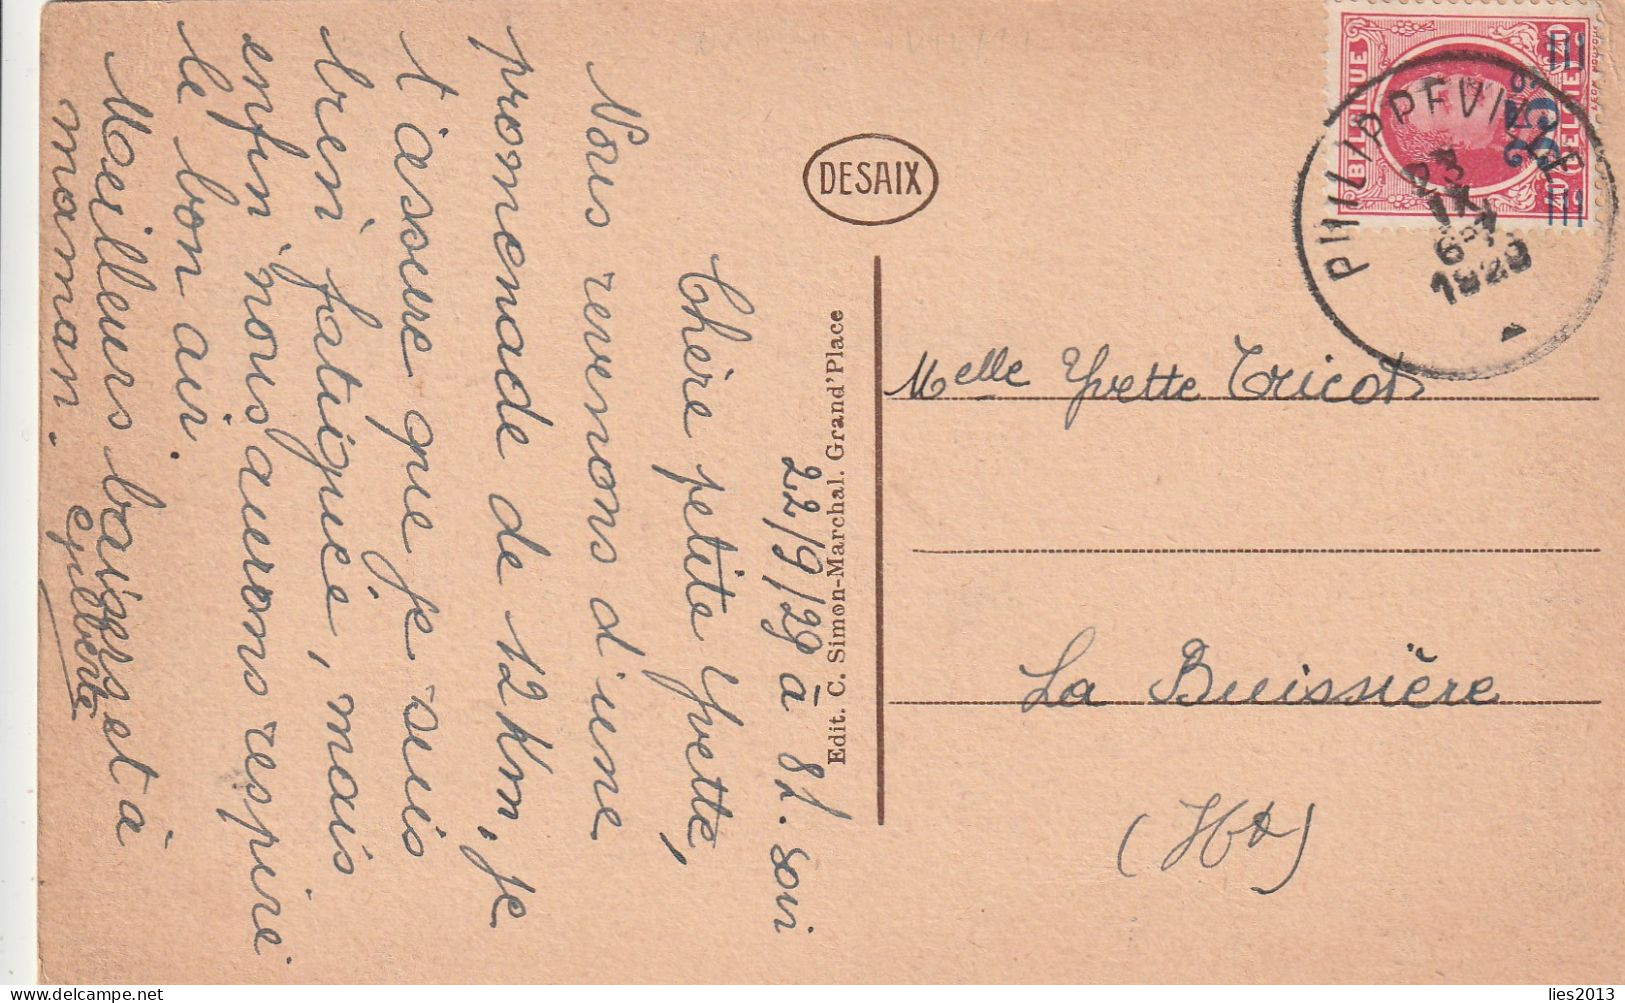 22/9/29 à 8h. soir
Chère petite Yvette,
Nous revenons d'une
promenade de 12 Km, je
t'assure que je suis
bien fatiguée, mais
enfin nous aurons respiré
le bon air.
Meilleurs baisers et à
maman.
Gilberte
Edit. C. Simon-Marchal. Grand'Place
DESAIX
BELGIQUE
BELGIË
35c
PHILIPPEVILLE
23
IX
1929
Melle Yvette Tricot
La Buissière
(Ht)
lies2013